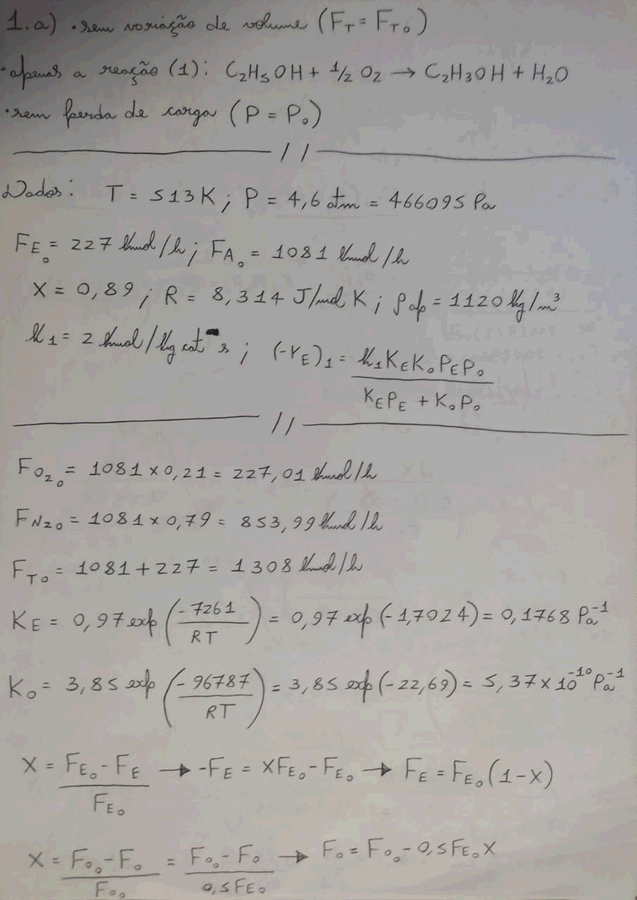 1.a) • sem variação de volume (F_T = F_To)
• apenas a reação (1): C₂H₅OH + ½ O₂ → C₂H₃OH + H₂O
• sem perda de carga (P = P₀)
//
Dados: T = 513K ; P = 4,6 atm = 466095 Pa
F_Eo = 227 kmol/h ; F_Ao = 1081 kmol/h
X = 0,89 ; R = 8,314 J/mol K ; ρ ap = 1120 kg/m³
k₁ = 2 kmol/kg cat s ; (-r_E)₁ = k₁K_EK_oP_EP_o / K_EP_E + K_oP_o
//
F_O₂o = 1081 x 0,21 = 227,01 kmol/h
F_N₂o = 1081 x 0,79 = 853,99 kmol/h
F_To = 1081 + 227 = 1308 kmol/h
K_E = 0,97 exp (-7261 / RT) = 0,97 exp (-1,7024) = 0,1768 Pa⁻¹
K_o = 3,85 exp (-96787 / RT) = 3,85 exp (-22,69) = 5,37 x 10⁻¹⁰ Pa⁻¹
X = F_Eo - F_E / F_Eo → -F_E = XF_Eo - F_Eo → F_E = F_Eo (1-X)
X = F_Oo - F_o / F_Oo = F_Oo - F_o / 0,5F_Eo → F_o = F_Oo - 0,5F_Eo X